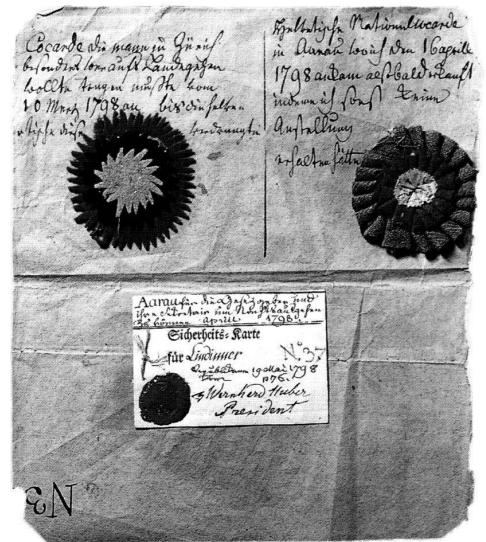 Cocarde die mann in Zürich
besonders wer aufs Land gehen
wollte tragen mußte vom
10 Merz 1798 an bis die
verdrängte
Helvetische National Cocarde
in Aarau wo ich den 16 aprill
1798 ankam alsbald erkauft
indeme ich sonst keine
Anstellung
erhalten hätte
Aarau für die Gesetzgeber und
ihre
zu können Aprill 1798.
Sicherheits-Karte
für Lindinner N.º 37
19 Mai 1798
Wernhard Huber
President
N3